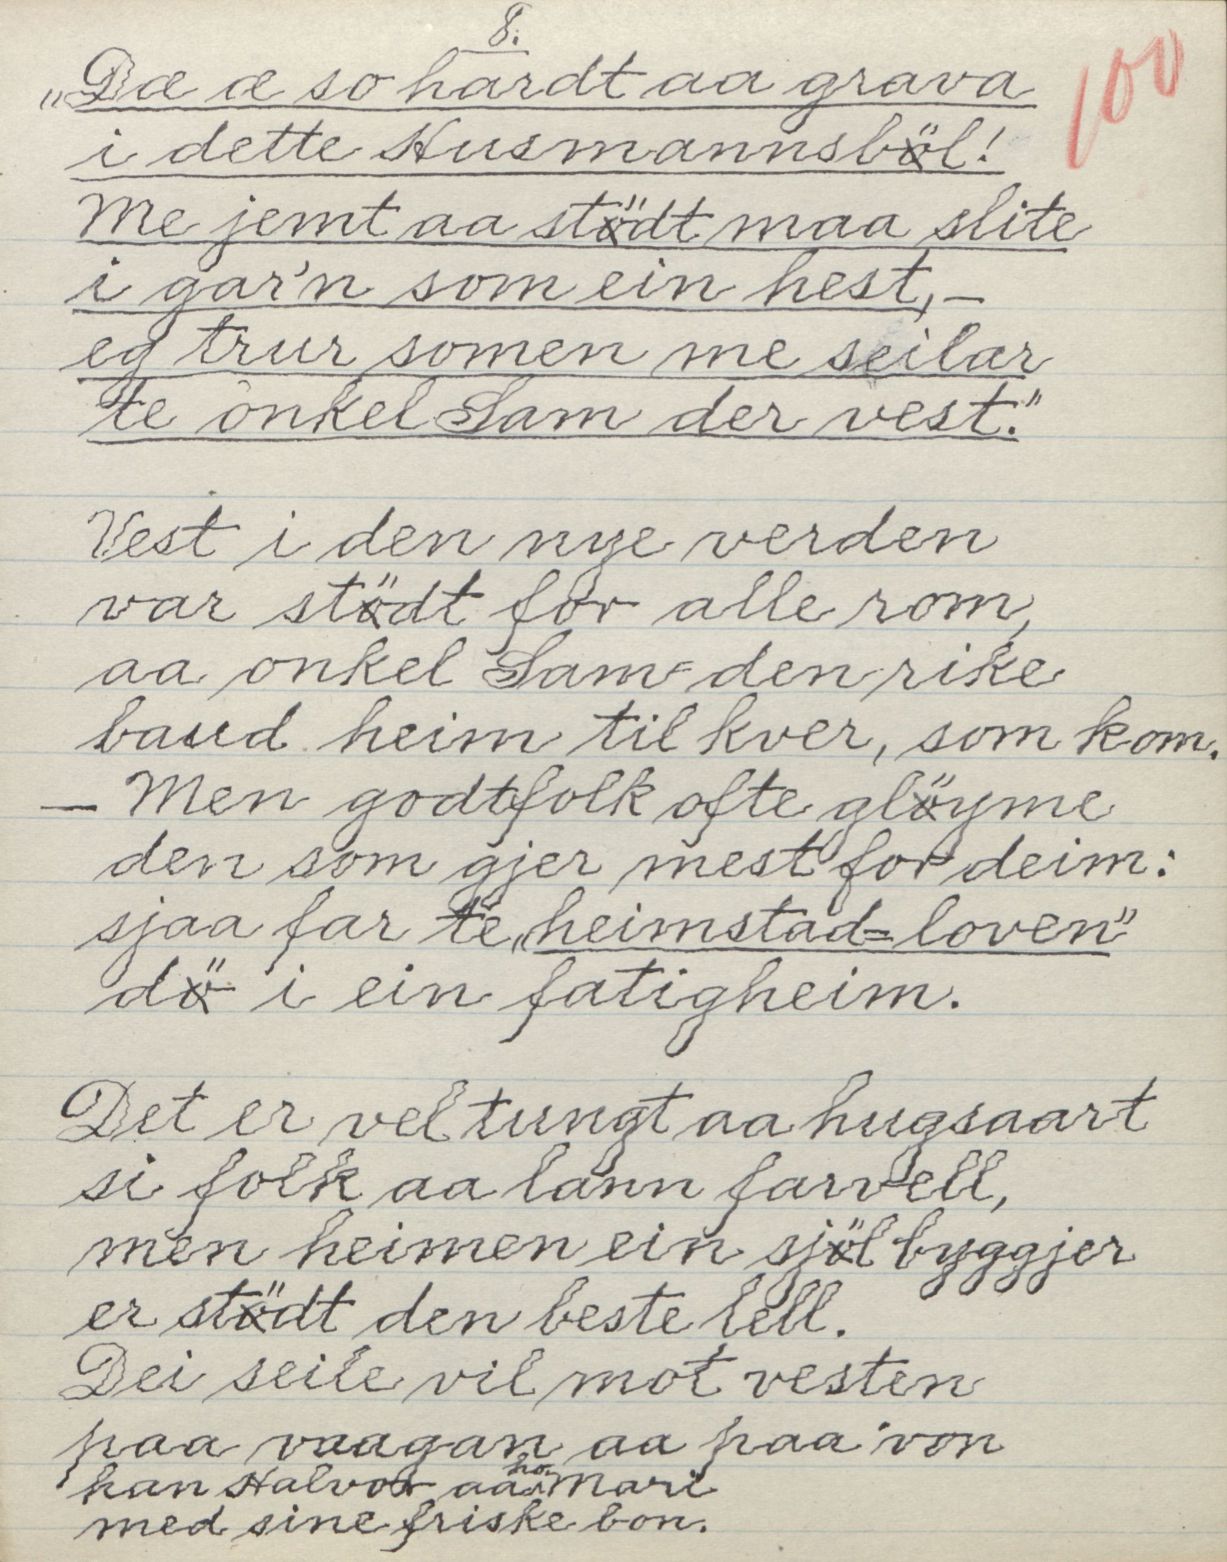 8.
100
„Dæ æ so hardt aa grava
i dette Husmannsböl!
Me jemt aa stödt maa slite
i gar'n som ein hest, –
eg trur somen me seilar
te onkel Sam der vest."
Vest i den nye verden
var stödt for alle rom,
aa onkel Sam - den rike
baud heim til kver, som kom.
— Men godtfolk ofte glöyme
den som gjer mest for deim:
sjaa far te „heimstad=loven"
dö i ein fatigheim.
Det er vel tungt aa hugsaart
si folk aa lann farvell,
men heimen ein sjöl byggjer
er stödt den beste lell.
Dei seile vil mot vesten
paa vaagan aa paa von
han Halvor aa ho Mari
med sine friske bon.